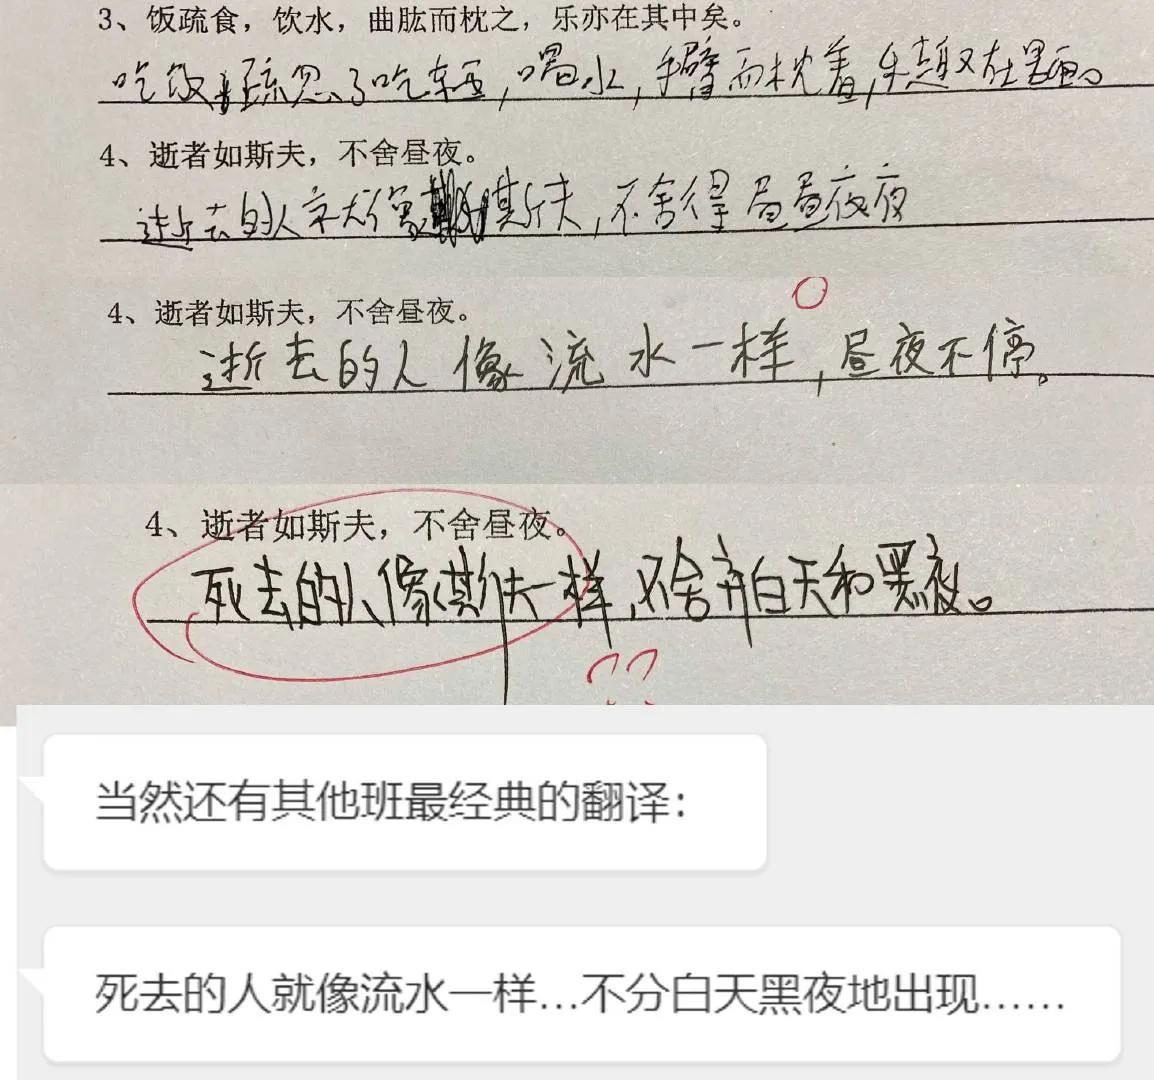 3、饭疏食，饮水，曲肱而枕之，乐亦在其中矣。
吃饭疏忽了吃东西，喝水，手臂而枕着，乐趣又在里面。
4、逝者如斯夫，不舍昼夜。
逝去的人就像斯夫，不舍得昼昼夜夜
4、逝者如斯夫，不舍昼夜。
逝去的人像流水一样，昼夜不停。
4、逝者如斯夫，不舍昼夜。
死去的人像斯夫一样，不舍弃白天和黑夜。
??
当然还有其他班最经典的翻译：
死去的人就像流水一样…不分白天黑夜地出现……